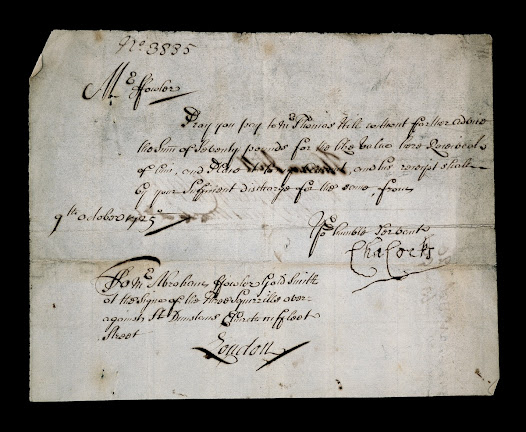 No. 3835
Mr. ffowler
Pray you pay to Mr Thomas Hill without farther advice
the Sum of Seventy pounds for the like value here Received
of him, and place it to , and his receipt shall
be your Sufficient discharge for the same from
9th. October 1725
Yor. humble Servant
Cha Cocks
To Mr. Abraham ffowler Goldsmith
at the signe of the Three Squirrills over-
against St. Dunstans Church in ffleet
Street
London